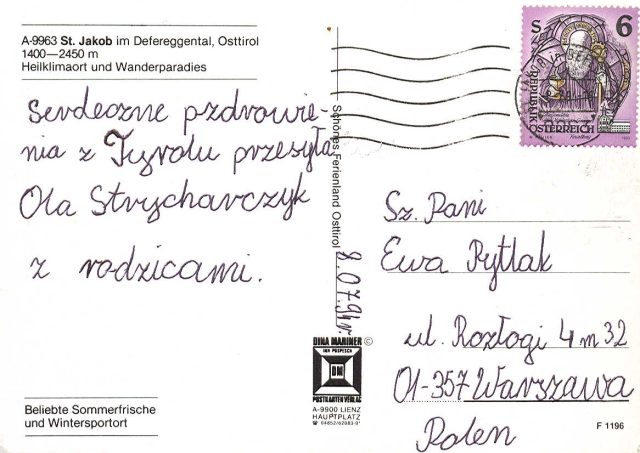 A-9963 St. Jakob im Defereggental, Osttirol
1400—2450 m
Heilklimaort und Wanderparadies
Serdeczne pzdrowie-
nia z Tyrolu przesyła
Ola Strycharczyk
z rodzicami.
Beliebte Sommerfrische
und Wintersportort
Schönes Ferienland Osttirol
8.07.94r.
DINA MARINER ©
INH POSPESCH
DM
POSTKARTEN VERLAG
A-9900 LIENZ
HAUPTPLATZ
S 6
REPUBLIK
ÖSTERREICH
Sz. Pani
Ewa Pytlak
ul. Rozłogi 4 m 32
01-357 Warszawa
Polen
F 1196